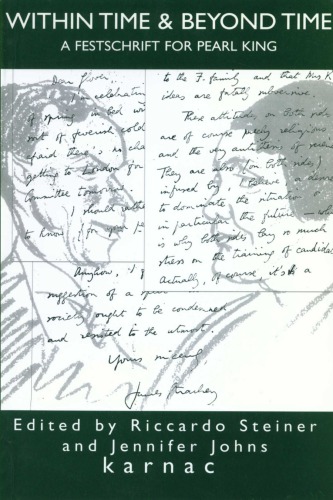 WITHIN TIME & BEYOND TIME
A FESTSCHRIFT FOR PEARL KING
Dear Glover
I'm celebrating
of spring in bed with
sort of feverish cold
afraid there's no cha
getting to London for
Committee tomorrow
I should rathe
to know (for your p
Anyhow, I
suggestion of a
society ought to be condemned
and resisted to the utmost.
Yours sincerely
James Strachey
to the F. family and that Mrs K
ideas are fatally subversive.
These attitudes on both sides
are of course purely religious
and the very antithesis of scie
They are also (on both sides)
infused by, I believe a desire
to dominate the situation
in particular the future
is why both sides lay so much
stress on the training of candida
Actually, of course, it's a
Edited by Riccardo Steiner
and Jennifer Johns
karnac